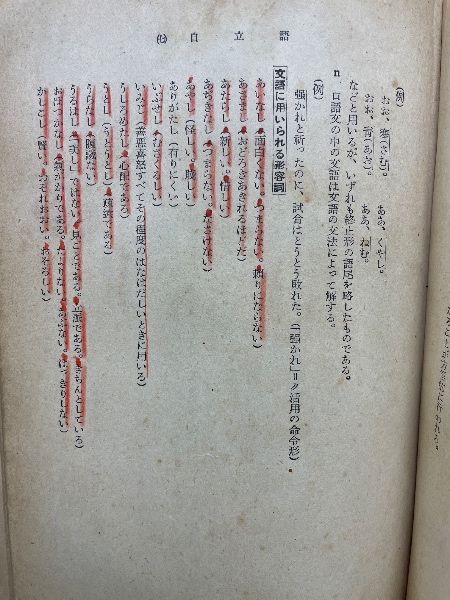 語立自 (七)
(例)
おお、寒(さむ)。　ああ、くやし。
おお、青(あお)。　ああ、ねむ。
などと用いるが、いずれも終止形の語尾を略したものである。
n　口語文の中の文語は文語の文法によって解する。
(例)
強かれと祈ったのに、試合はとうとう敗れた。(「強かれ」＝ク活用の命令形)
文語に用いられる形容詞
あいなし(面白くない。つまらない。頼りにならない)
あさまし(おどろきあきれるほどだ)
あたらし(新しい。惜しい)
あぢきなし(つまらない。なさけない)
あやし(怪しい。賤しい)
ありがたし(有りにくい)
いぶせし(むさくるしい)
いみじ(善悪喜怒すべてその程度のはなはだしいときに用いる)
うしろめたし(心配である)
うとし(うとうとし)(疎遠である)
うらなし(隔意ない)
うるはし(「美し」ではない。見ごとである。立派である。きちんとしている)
おぼつかなし(気がかりである。たよりない。あぶない。はっきりしない)
かしこし(賢い。おそれおおい。おそろしい)